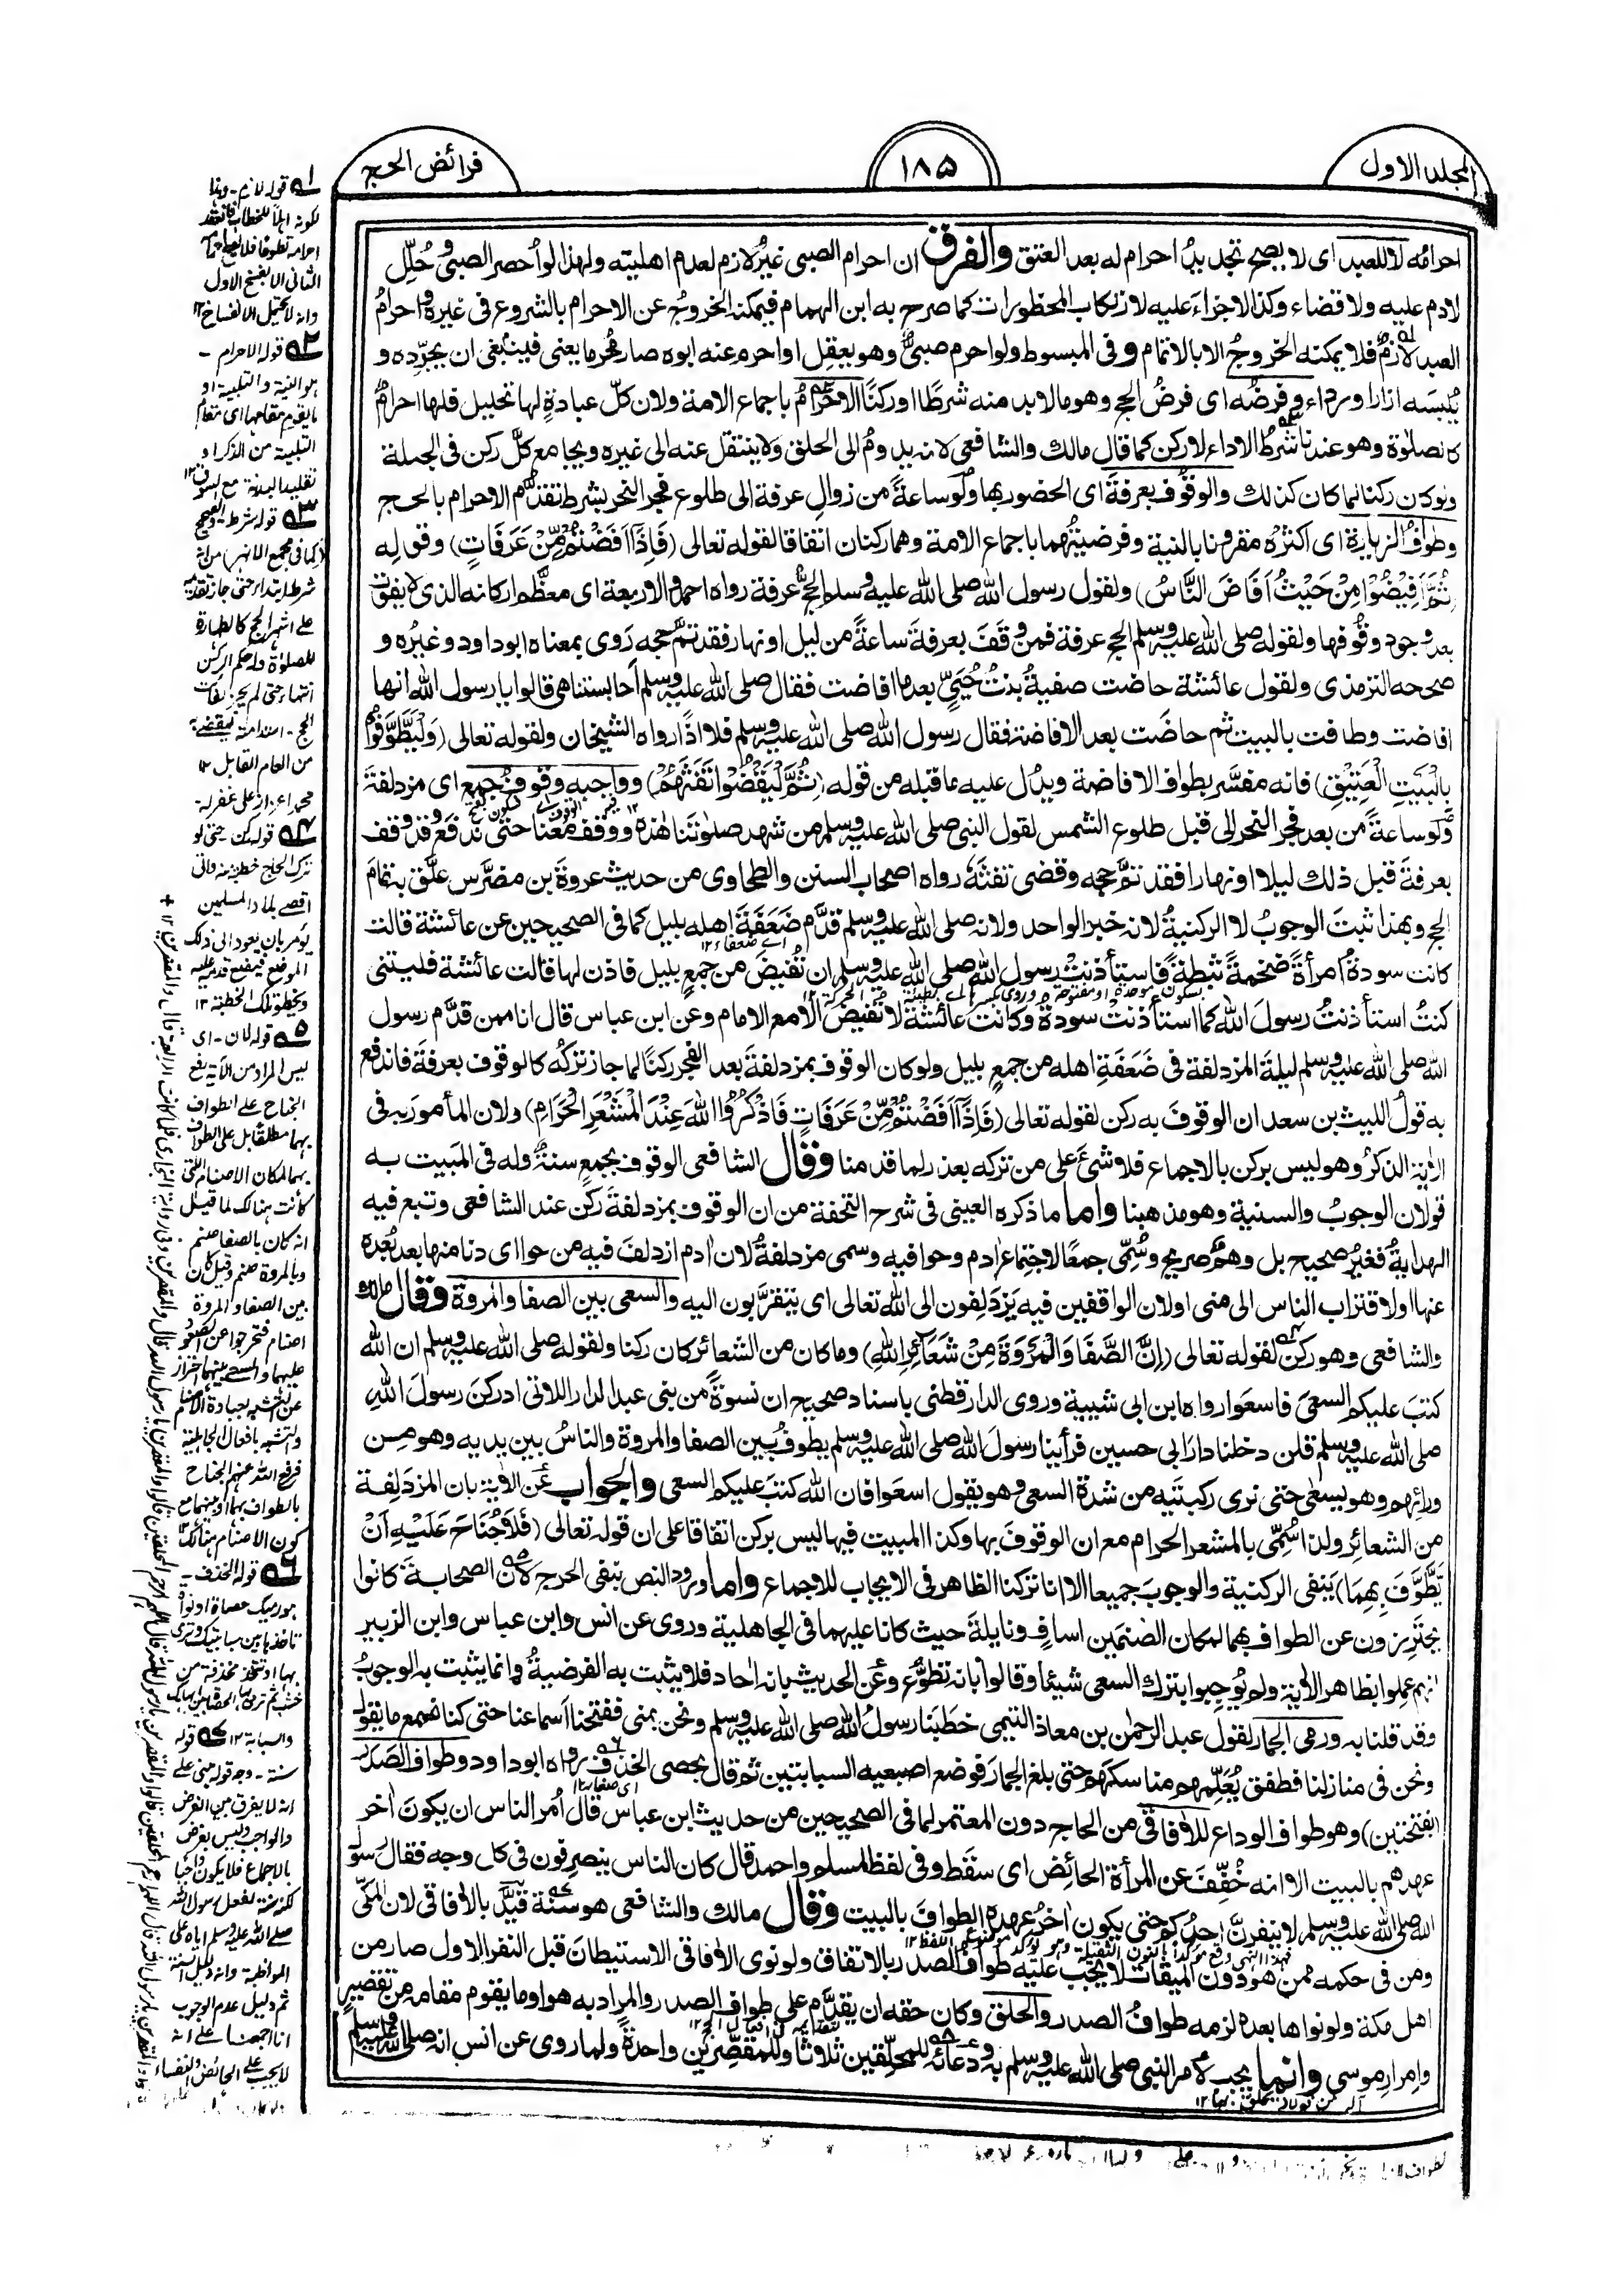 المجلد الاول
۱۸۵
فرائض الحج
احرامُه لا للعبد اى لا يصح تجديدُ احرام له بعد العتق والفرق ان احرام الصبى غيرُ لازم لعدم اهليته ولهذا لو أُحصر الصبىُّ وحُلِّل
لادم عليه ولا قضاء وكذا لاجزاءَ عليه لارتكاب المحظورات كما صرح به ابن الهمام فيمكنه الخروجُ عن الاحرام بالشروع فى غيره واحرامُ
العبد لازمٌ فلا يمكنه الخروجُ الا بالاتمام وفى المبسوط ولو احرم صبىٌّ وهو يعقِل او احرم عنه ابوه صار محرما يعنى فينبغى ان يجرِّده و
يُلبسَه ازارا ورداء وفرضُه اى فرضُ الحج وهو ما لا بد منه شرطًا او ركنًا الاحرامُ باجماع الامة ولان كلّ عبادةٍ لها تحليل فلها احرامٌ
كالصلوٰة وهو عندنا شرطُ الاداء لا ركن كما قال مالك والشافعى لانه يدومُ الى الحلق ولا ينتقل عنه الى غيره ويجامع كلَّ ركن فى الجملة
ولو كان ركنا لما كان كذلك والوقوف بعرفةَ اى الحضور بها ولو ساعةً من زوالِ عرفة الى طلوع فجر النحر بشرط تقدُّم الاحرام بالحج
وطوافُ الزيارة اى اكثرُه مقرونا بالنية وفرضيتُهما باجماع الامة وهما ركنان اتفاقا لقوله تعالى (فَإِذَآ اَفَضْتُمْ مِّنْ عَرَفَاتٍ) وقولِه
(ثُمَّ اَفِيْضُوْا مِنْ حَيْثُ اَفَاضَ النَّاسُ) ولقول رسول الله صلى الله عليه وسلم الحجُّ عرفة رواه احمد والاربعة اى معظَّم اركانه الذى لا يفوت
بعد وجود وقوفها ولقوله صلى الله عليه وسلم الحج عرفة فمن وقَفَ بعرفةَ ساعةً من ليل او نهار فقد تمَّ حجه رَوى بمعناه ابو داود وغيرُه و
صححه الترمذى ولقول عائشة حاضت صفيةُ بنتُ حُيَىٍّ بعد ما افاضت فقال صلى الله عليه وسلم أحابستنا هى قالوا يا رسول الله انها
افاضت وطافت بالبيت ثم حاضت بعد الافاضة فقال رسول الله صلى الله عليه وسلم فلا اذًا رواه الشيخان ولقوله تعالى (وَلْيَطَّوَّفُوْا
بِالْبَيْتِ الْعَتِيْقِ) فانه مفسَّر بطواف الافاضة ويدُل عليه ما قبله من قوله (ثُمَّ لْيَقْضُوْا تَفَثَهُمْ) وواجبه وقوفُ جمعٍ اى مزدلفةَ
ولو ساعةً من بعد فجر النحر الى قبل طلوع الشمس لقول النبى صلى الله عليه وسلم من شهد صلوٰتنا هٰذه ووقف معنا حتى ندفع وقد وقف
بعرفة قبل ذلك ليلا او نهارا فقد تمَّ حجه وقضى تفثَه رواه اصحاب السنن والطحاوى من حديث عروةَ بن مضرَّس علَّق به تمامَ
الحج وبهذا ثبتَ الوجوبُ لا الركنيةُ لانه خبر الواحد ولانه صلى الله عليه وسلم قدَّم ضَعَفَةَ اهله بليل كما فى الصحيحين عن عائشة قالت
كانت سودةُ امرأةً ضخمةً ثبطةً فاستأذنتْ رسول الله صلى الله عليه وسلم ان تُفيضَ من جمعٍ بليل فاذن لها قالت عائشة فليتنى
كنتُ استأذنتُ رسولَ الله كما استأذنت سودة وكانت عائشة لا تُفيض الا مع الامام وعن ابن عباس قال انا ممن قدَّم رسول
الله صلى الله عليه وسلم ليلةَ المزدلفة فى ضَعَفَةِ اهله من جمعٍ بليل ولو كان الوقوف بمزدلفة بعد الفجر ركنًا لما جاز تركُه كالوقوف بعرفة فاندفع
به قولُ الليث بن سعد ان الوقوفَ به ركن لقوله تعالى (فَإِذَآ اَفَضْتُمْ مِّنْ عَرَفَاتٍ فَاذْكُرُوا اللهَ عِنْدَ الْمَشْعَرِ الْحَرَامِ) ولان المأمورَ به فى
الاٰية الذكرُ وهو ليس بركن بالاجماع فلا شئَ على من تركه بعذر لما قدمنا وقال الشافعى الوقوف بجمعٍ سنةٌ وله فى المَبيت به
قولان الوجوبُ والسنية وهو مذهبنا واما ما ذكره العينى فى شرح التحفة من ان الوقوف بمزدلفةَ ركن عند الشافعى وتبع فيه
الهدايةَ فغيرُ صحيح بل وهمٌ صريح وسُمِّى جمعًا لاجتماع اٰدم وحوا فيه وسمى مزدلفةُ لان اٰدم ازدلفَ فيه من حوا اى دنا منها بعد بُعده
عنها اولاقتراب الناس الى منى اولان الواقفين فيه يَزدَلِفون الى الله تعالى اى يتقرَّبون اليه والسعى بين الصفا والمروة وقال مالك
والشافعى وهو ركن لقوله تعالى (اِنَّ الصَّفَا وَالْمَرْوَةَ مِنْ شَعَآئِرِ اللهِ) وما كان من الشعائر كان ركنا ولقوله صلى الله عليه وسلم ان الله
كتبَ عليكم السعىَ فاسعَوا رواه ابن ابى شيبة وروى الدارقطنى باسناد صحيح ان نسوةً من بنى عبد الدار اللاتى ادركنَ رسولَ الله
صلى الله عليه وسلم قلن دخلنا دارَ ابى حسين فرأينا رسولَ الله صلى الله عليه وسلم يطوفُ بين الصفا والمروة والناسُ بين يديه وهو من
ورائهم وهو يسعٰى حتى نرى ركبتَيه من شدة السعى وهو يقول اسعَوا فان الله كتبَ عليكم السعى والجواب عن الاٰية بان المزدلفة
من الشعائر ولذا سُمِّى بالمشعر الحرام مع ان الوقوفَ بها وكذا المبيت فيها ليس بركن اتفاقا على ان قوله تعالى (فَلَا جُنَاحَ عَلَيْهِ اَنْ
يَّطَّوَّفَ بِهِمَا) يَنفى الركنية والوجوبَ جميعا الا انا تركنا الظاهر فى الايجاب للاجماع واما ورود النص بنفى الحرج لان الصحابة كانوا
يحترزون عن الطواف بهما لمكان الصنمَين اسافٍ ونايلةَ حيث كانا عليهما فى الجاهلية وروى عن انس وابن عباس وابن الزبير
انهم عمِلوا بظاهر الاٰية ولم يُوجِبوا بترك السعى شيئا وقالوا بانه تطوُّع وعن الحديث بانه اٰحاد فلا يثبت به الفرضيةُ وانما يثبت به الوجوبُ
وقد قلنا به ورمى الجمار لقول عبد الرحمٰن بن معاذ التيمى خطَبَنا رسولُ الله صلى الله عليه وسلم ونحن بمنى ففتحنا أسماعنا حتى كنا نسمع ما يقول
ونحن فى منازلنا فطفق يُعَلِّمهم مناسكَهم حتى بلغ الجمارَ فوضع اصبعيه السبابتين ثم قال بحصى الخذف رواه ابو داود وطواف الصَدَر
(بفتحتين) وهو طواف الوداع للاٰفاقى من الحاج دون المعتمر لما فى الصحيحين من حديث ابن عباس قال أُمر الناس ان يكونَ اٰخر
عهدهم بالبيت الا انه خُفِّفَ عن المرأة الحائض اى سقَط وفى لفظ لمسلم واحمد قال كان الناس ينصرِفون فى كل وجه فقال رسول
الله صلى الله عليه وسلم لا ينفرنَّ احدُكم حتى يكون اٰخرُ عهده الطوافَ بالبيت وقال مالك والشافعى هو سنة قيَّد بالاٰفاقى لان المكّى
ومن فى حكمه ممن هو دون الميقات لا يجب عليه طواف الصدر بالاتفاق ولو نوى الاٰفاقى الاستيطانَ قبل النفر الاول صار من
اهل مكة ولو نواها بعده لزمه طوافُ الصدر والحلق وكان حقه ان يقدَّم على طواف الصدر والمراد به هو او ما يقوم مقامه من تقصيرٍ
وامرار موسى وانما يجب لامر النبى صلى الله عليه وسلم به ودعائه للمحلِّقين ثلاثا وللمقصِّرين واحدةً ولما روى عن انس انه صلى الله عليه وسلم
۱ قوله لازم - وهذا
۲ قوله الاحرام -
هو النية والتلبية او
ما يقوم مقامها اى مقام
التلبية من الذكر او
للصلوٰة وله حكم الركن
من العام القابل ۱۲
محمد اعزاز على غفرله
اقصى بلاد المسلمين
يؤمر بان يعود الى ذلك
۵ قوله لان - اى
ليس المراد من الآية رفع
الجناح على الطواف
بهما مطلقا بل على الطواف
بهما لمكان الاصنام التى
كانت هنالك لما قيل
انه كان بالصفا صنم
وبالمروة صنم وقيل كان
بين الصفا والمروة
والتشبه بافعال الجاهلية
فرفع الله عنهم الجناح
بالطواف بهما او بينهما مع
كون الاصنام هنالك
۶ قوله الخذف -
والسبابة ۱۲ ۷ قوله
انه لا يفرق بين الفرض
والواجب وليس بفرض
بالاجماع فلا يكون واجبا
لكنه سنة لفعل رسول الله
صلى الله عليه وسلم اياه على
ثم دليل عدم الوجوب
انا اجمعنا على انه
لا يجب على الحائض والنفساء